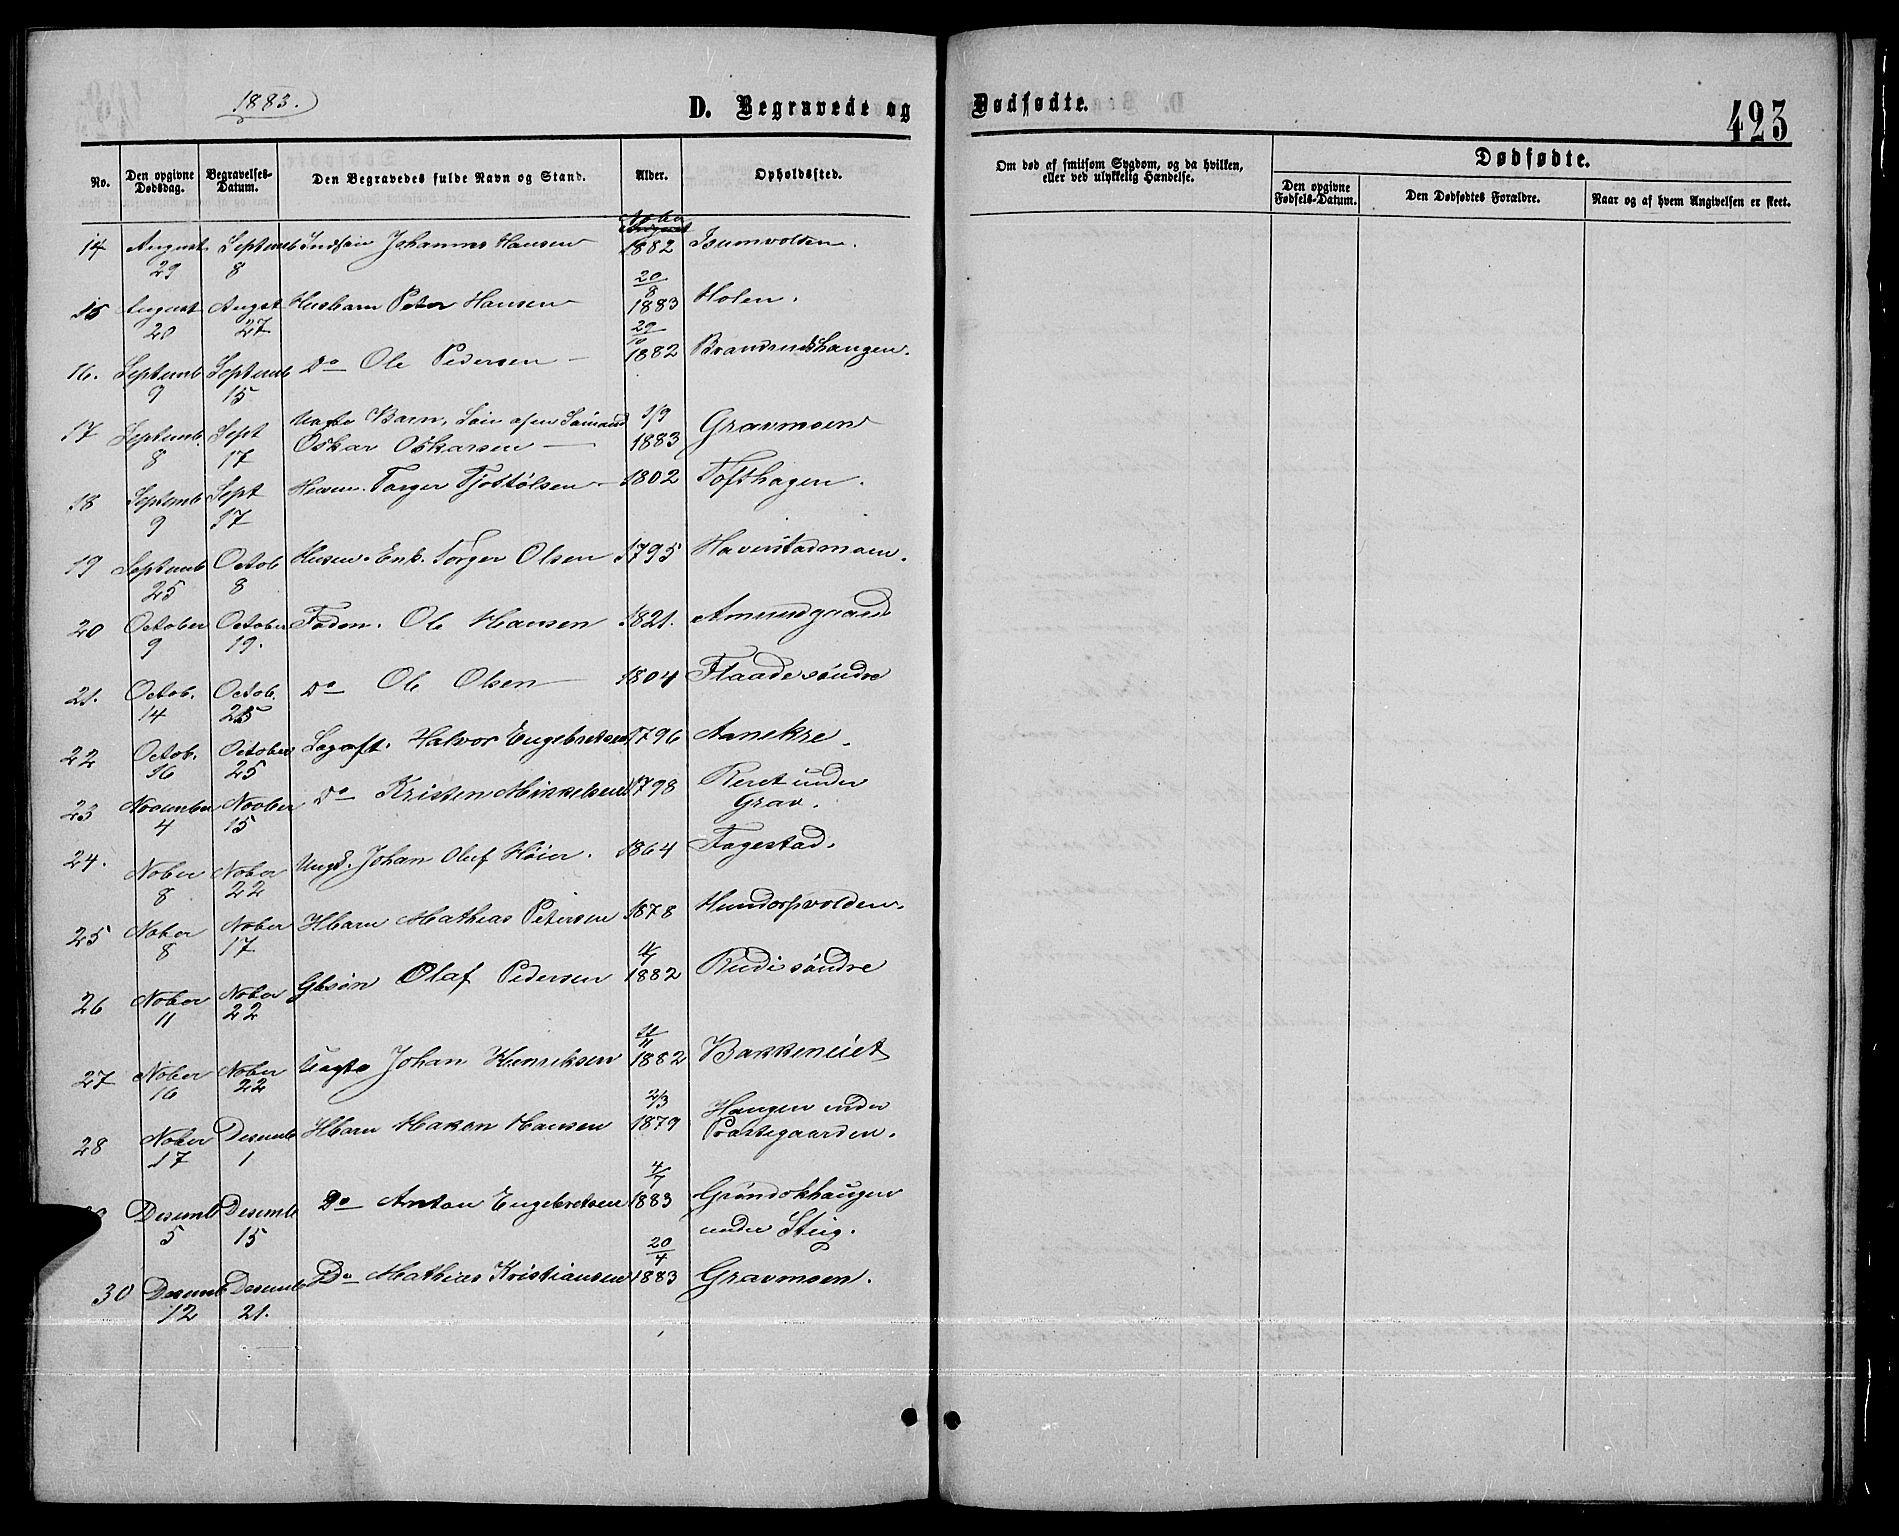 1883.
D. Begravede og
Dødfødte.
423
No.
Den opgivne Dødsdag.
Begravelses-Datum.
Den Begravedes fulde Navn og Stand.
Alder.
Opholdssted.
Om død af smitsom Sygdom, og da hvilken, eller ved ulykkelig Hændelse.
Dødfødte.
Den opgivne Fødsels-Datum.
Den Dødfødtes Forældre.
Naar og af hvem Angivelsen er skeet.
14 August 29 Septemb 8 Johannes Hansen Nober 1882
15 August 20 Augst 27 Husbarn Peter Hansen 20/8 1883 Holen.
16. Septemb 9 Septemb 15 Do Ole Pedersen 29/10 1882
17 Septemb. 8 Sept 17 Uægte Barn, Søn af
Oskar Oskarsen 1/9 1883 Gravmoen
18 Septemb 9 Sept 17 Torger 1802 Tofthagen.
19 Septemb 25 Octob 8 Enk. Torger Olsen 1795 Haverstadmoen.
20 October 9 October 19. Ole Hansen 1821. Amundgaard
21. Octob. 14 Octob. 25 Do Ole Olsen 1804 Flaade søndre
22 Octob. 16 October 25 Halvor Engebretsen 1796
23 November 4 Novber 15 Do Kristen Mikkelsen 1798 under
Grav.
24. Nober 8 Nober 22 Ungk. Johan Oluf Høier. 1864 Fagestad.
25 Nober 8 Nober 17 HBarn Mathias Petersen 1878 Hundorpvolden.
26 Nober 11 Nober 22 Gbsøn Olaf Pedersen 1882 Rudi søndre
27 Nober 16 Nober 22 Uægte Johan Henriksen 11/11 1882 Bakkeneiet
28 Nober 17 Desemb 1 HBarn Hakon Hansen 2/3 1879 Haugen under
Præstegaarden.
Desemb 5 Desemb 15 Do Anton Engebretsen 4/7 1883
under Steig.
30 Desemb 12 Desemb 21. Do Mathias Kristiansen 20/4 1883 Gravmoen.